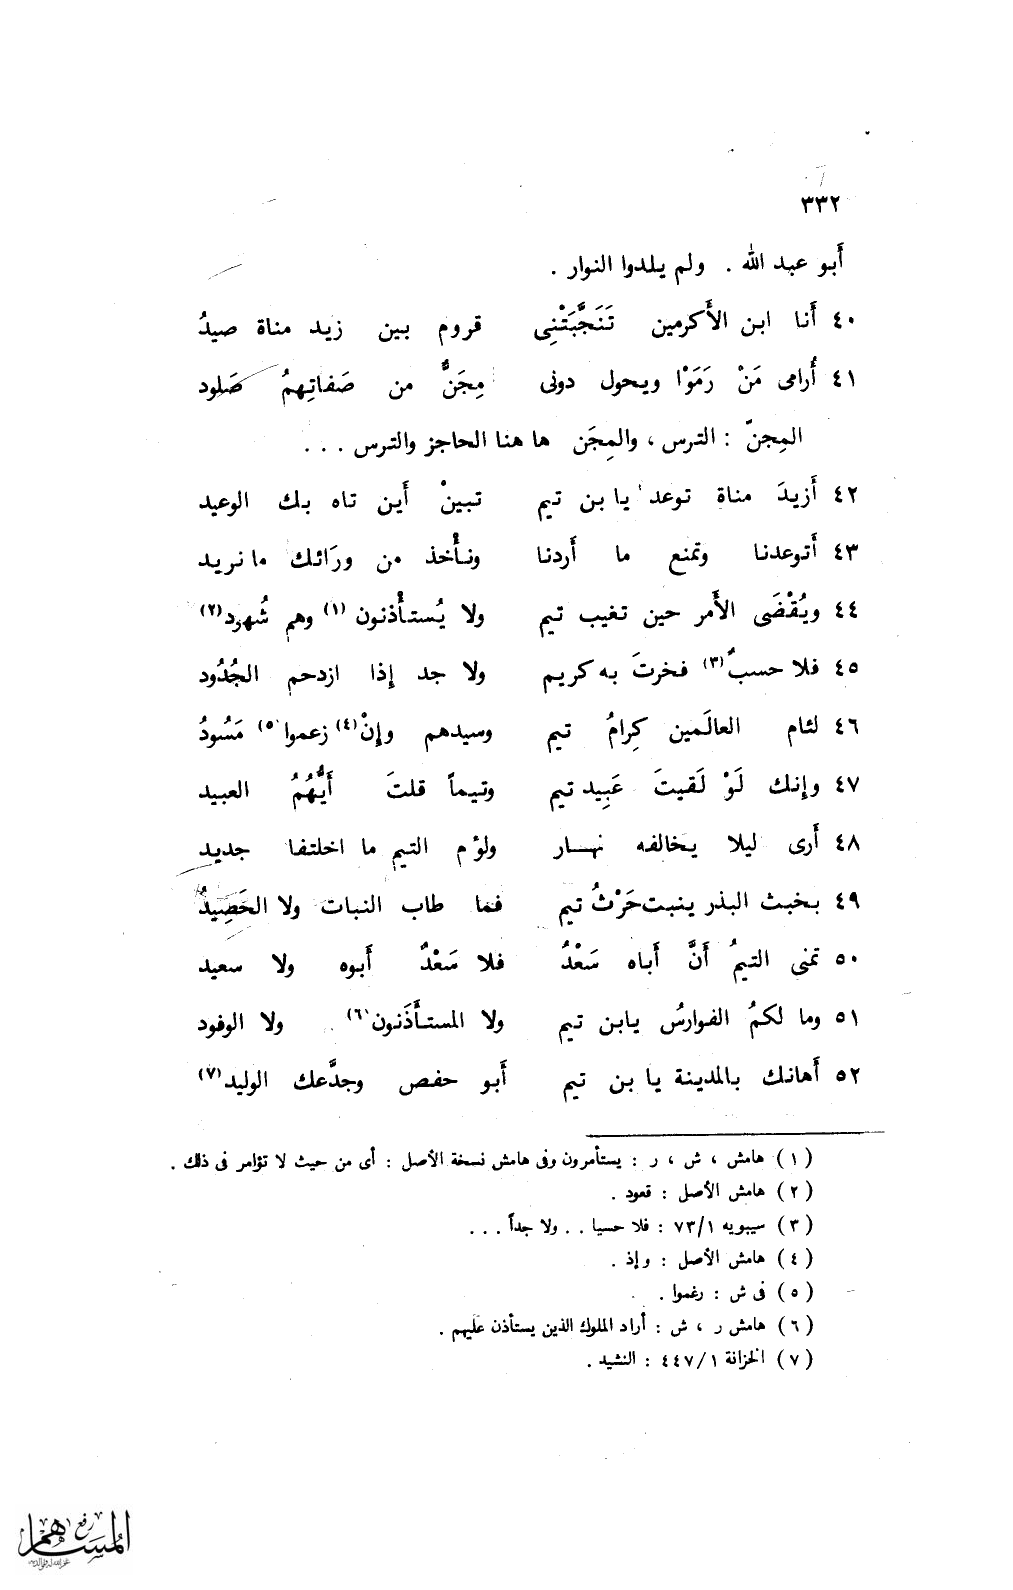 ٣٣٢
أَبو عبد الله . ولم يلدوا النوار .
٤٠ أَنا ابن الأَكرمين تَنَجَّبَتْنِى قروم بين زيد مناة صيدُ
٤١ أُرامى مَنْ رَمَوْا ويحول دونى مِجَنٌّ من صَفاتِهِمُ صَلود
المِجنّ : الترس ، والمِجَن ها هنا الحاجز والترس . . .
٤٢ أَزيدَ مناة توعد يا بن تيم تبينْ أَين تاه بك الوعيد
٤٣ أَتوعدنا وتمنع ما أَردنا ونأْخذ من ورَائك ما نريد
٤٤ ويُقْضَى الأَمر حين تغيب تيم ولا يُستأْذنون (١) وهم شُهود (٢)
٤٥ فلا حسبٌ (٣) فخرتَ به كريم ولا جد إِذا ازدحم الجُدُود
٤٦ لئام العالَمين كِرامُ تيم وسيدهم وإِنْ (٤) زعموا (٥) مَسُودُ
٤٧ وإِنك لَوْ لَقيتَ عَبِيد تيم وتيماً قلتَ أَيُّهُمُ العبيد
٤٨ أَرى ليلا يخالفه نهار ولؤم التيم ما اختلفا جديد
٤٩ بخبث البذر ينبت حَرْثُ تيم فما طاب النبات ولا الحَصِيدُ
٥٠ تمنى التيمُ أَنَّ أَباه سَعْدُ فلا سَعْدٌ أَبوه ولا سعيد
٥١ وما لكمُ الفوارسُ يابن تيم ولا المستأَذَنون (٦) ولا الوفود
٥٢ أَهانك بالمدينة يا بن تيم أَبو حفص وجدَّعك الوليد (٧)
(١) هامش ، ش ، ر : يستأمرون وفى هامش نسخة الأصل : أى من حيث لا تؤامر فى ذلك .
(٢) هامش الأصل : قعود .
(٣) سيبويه ٧٣/١ : فلا حسبا . . ولا جداً . . .
(٤) هامش الأصل : وإذ .
(٥) فى ش : رغموا .
(٦) هامش ر ، ش : أراد الملوك الذين يستأذن عليهم .
(٧) الخزانة ٤٤٧/١ : النشيد .
رفع
المساهم